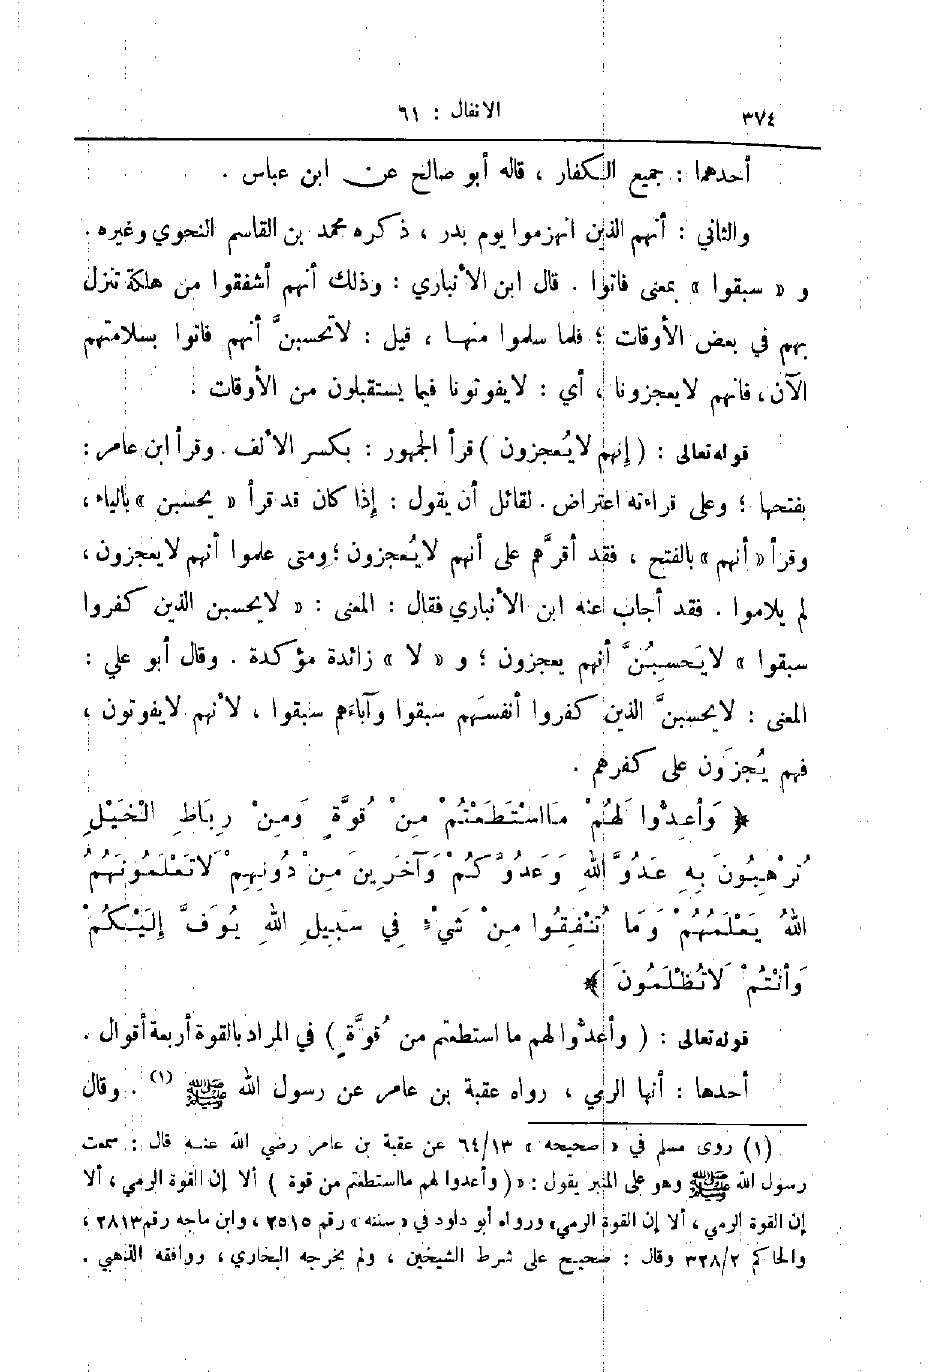 ٣٧٤
الانفال : ٦١
أحدهما : جميع الكفار ، قاله أبو صالح عن ابن عباس .
والثاني : أنهم الذين انهزموا يوم بدر ، ذكره محمد بن القاسم النحوي وغيره .
و « سبقوا » بمعنى فاتوا . قال ابن الأنباري : وذلك أنهم أشفقوا من هلكة تنزل
بهم في بعض الأوقات ؛ فلما سلموا منها ، قيل : لاتحسبنَّ أنهم فاتوا بسلامتهم
الآن ، فانهم لايعجزونا ، أي : لايفوتونا فيما يستقبلون من الأوقات .
قوله تعالى : ( إنهم لايُعجزون ) قرأ الجمهور : بكسر الألف . وقرأ ابن عامر :
بفتحها ؛ وعلى قراءته اعتراض . لقائل أن يقول : إذا كان قد قرأ « يحسبن » بالياء ،
وقرأ « أنهم » بالفتح ، فقد أقرَّهم على أنهم لايُعجزون ؛ ومتى علموا أنهم لايعجزون ،
لم يلاموا . فقد أجاب عنه ابن الأنباري فقال : المعنى : « لايحسبن الذين كفروا
سبقوا » لايَحسِبُنَّ أنهم يعجزون ؛ و « لا » زائدة مؤكدة . وقال أبو علي :
المعنى : لايحسبنَّ الذين كفروا أنفسَهم سبقوا وآباءَهم سبقوا ، لأنهم لايفوتون ؛
فهم يُجزَون على كفرهم .
﴿ وَأَعِدُّوا لَهُمْ مَااسْتَطَعْتُمْ مِنْ قُوَّةٍ وَمِنْ رِبَاطِ الْخَيْلِ
تُرْهِبُونَ بِهِ عَدُوَّ اللهِ وَعَدُوَّكُمْ وَآخَرِينَ مِنْ دُونِهِمْ لَاتَعْلَمُونَهُمُ
اللهُ يَعْلَمُهُمْ وَمَا تُنْفِقُوا مِنْ شَيْءٍ فِي سَبِيلِ اللهِ يُوَفَّ إِلَيْكُمْ
وَأَنْتُمْ لَاتُظْلَمُونَ ﴾
قوله تعالى : ( وأعدُّوا لهم ما استطعتم من قُوَّةٍ ) في المراد بالقوة أربعة أقوال .
أحدها : أنها الرمي ، رواه عقبة بن عامر عن رسول الله ﷺ (١) . وقال
(١) روى مسلم في « صحيحه » ٦٤/١٣ عن عقبة بن عامر رضي الله عنه قال : سمعت
رسول الله ﷺ وهو على المنبر يقول : « ( وأعدوا لهم مااستطعتم من قوة ) ألا إن القوة الرمي ، ألا
إن القوة الرمي ، ألا إن القوة الرمي » ورواه أبو داود في « سننه » رقم ٢٥١٥ ، وابن ماجه رقم ٢٨١٣ ،
والحاكم ٣٢٨/٢ وقال : صحيح على شرط الشيخين ، ولم يخرجه البخاري ، ووافقه الذهبي .